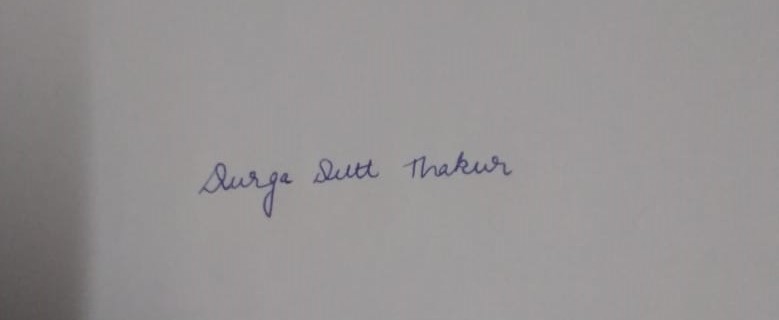 Durga Dutt Thakur